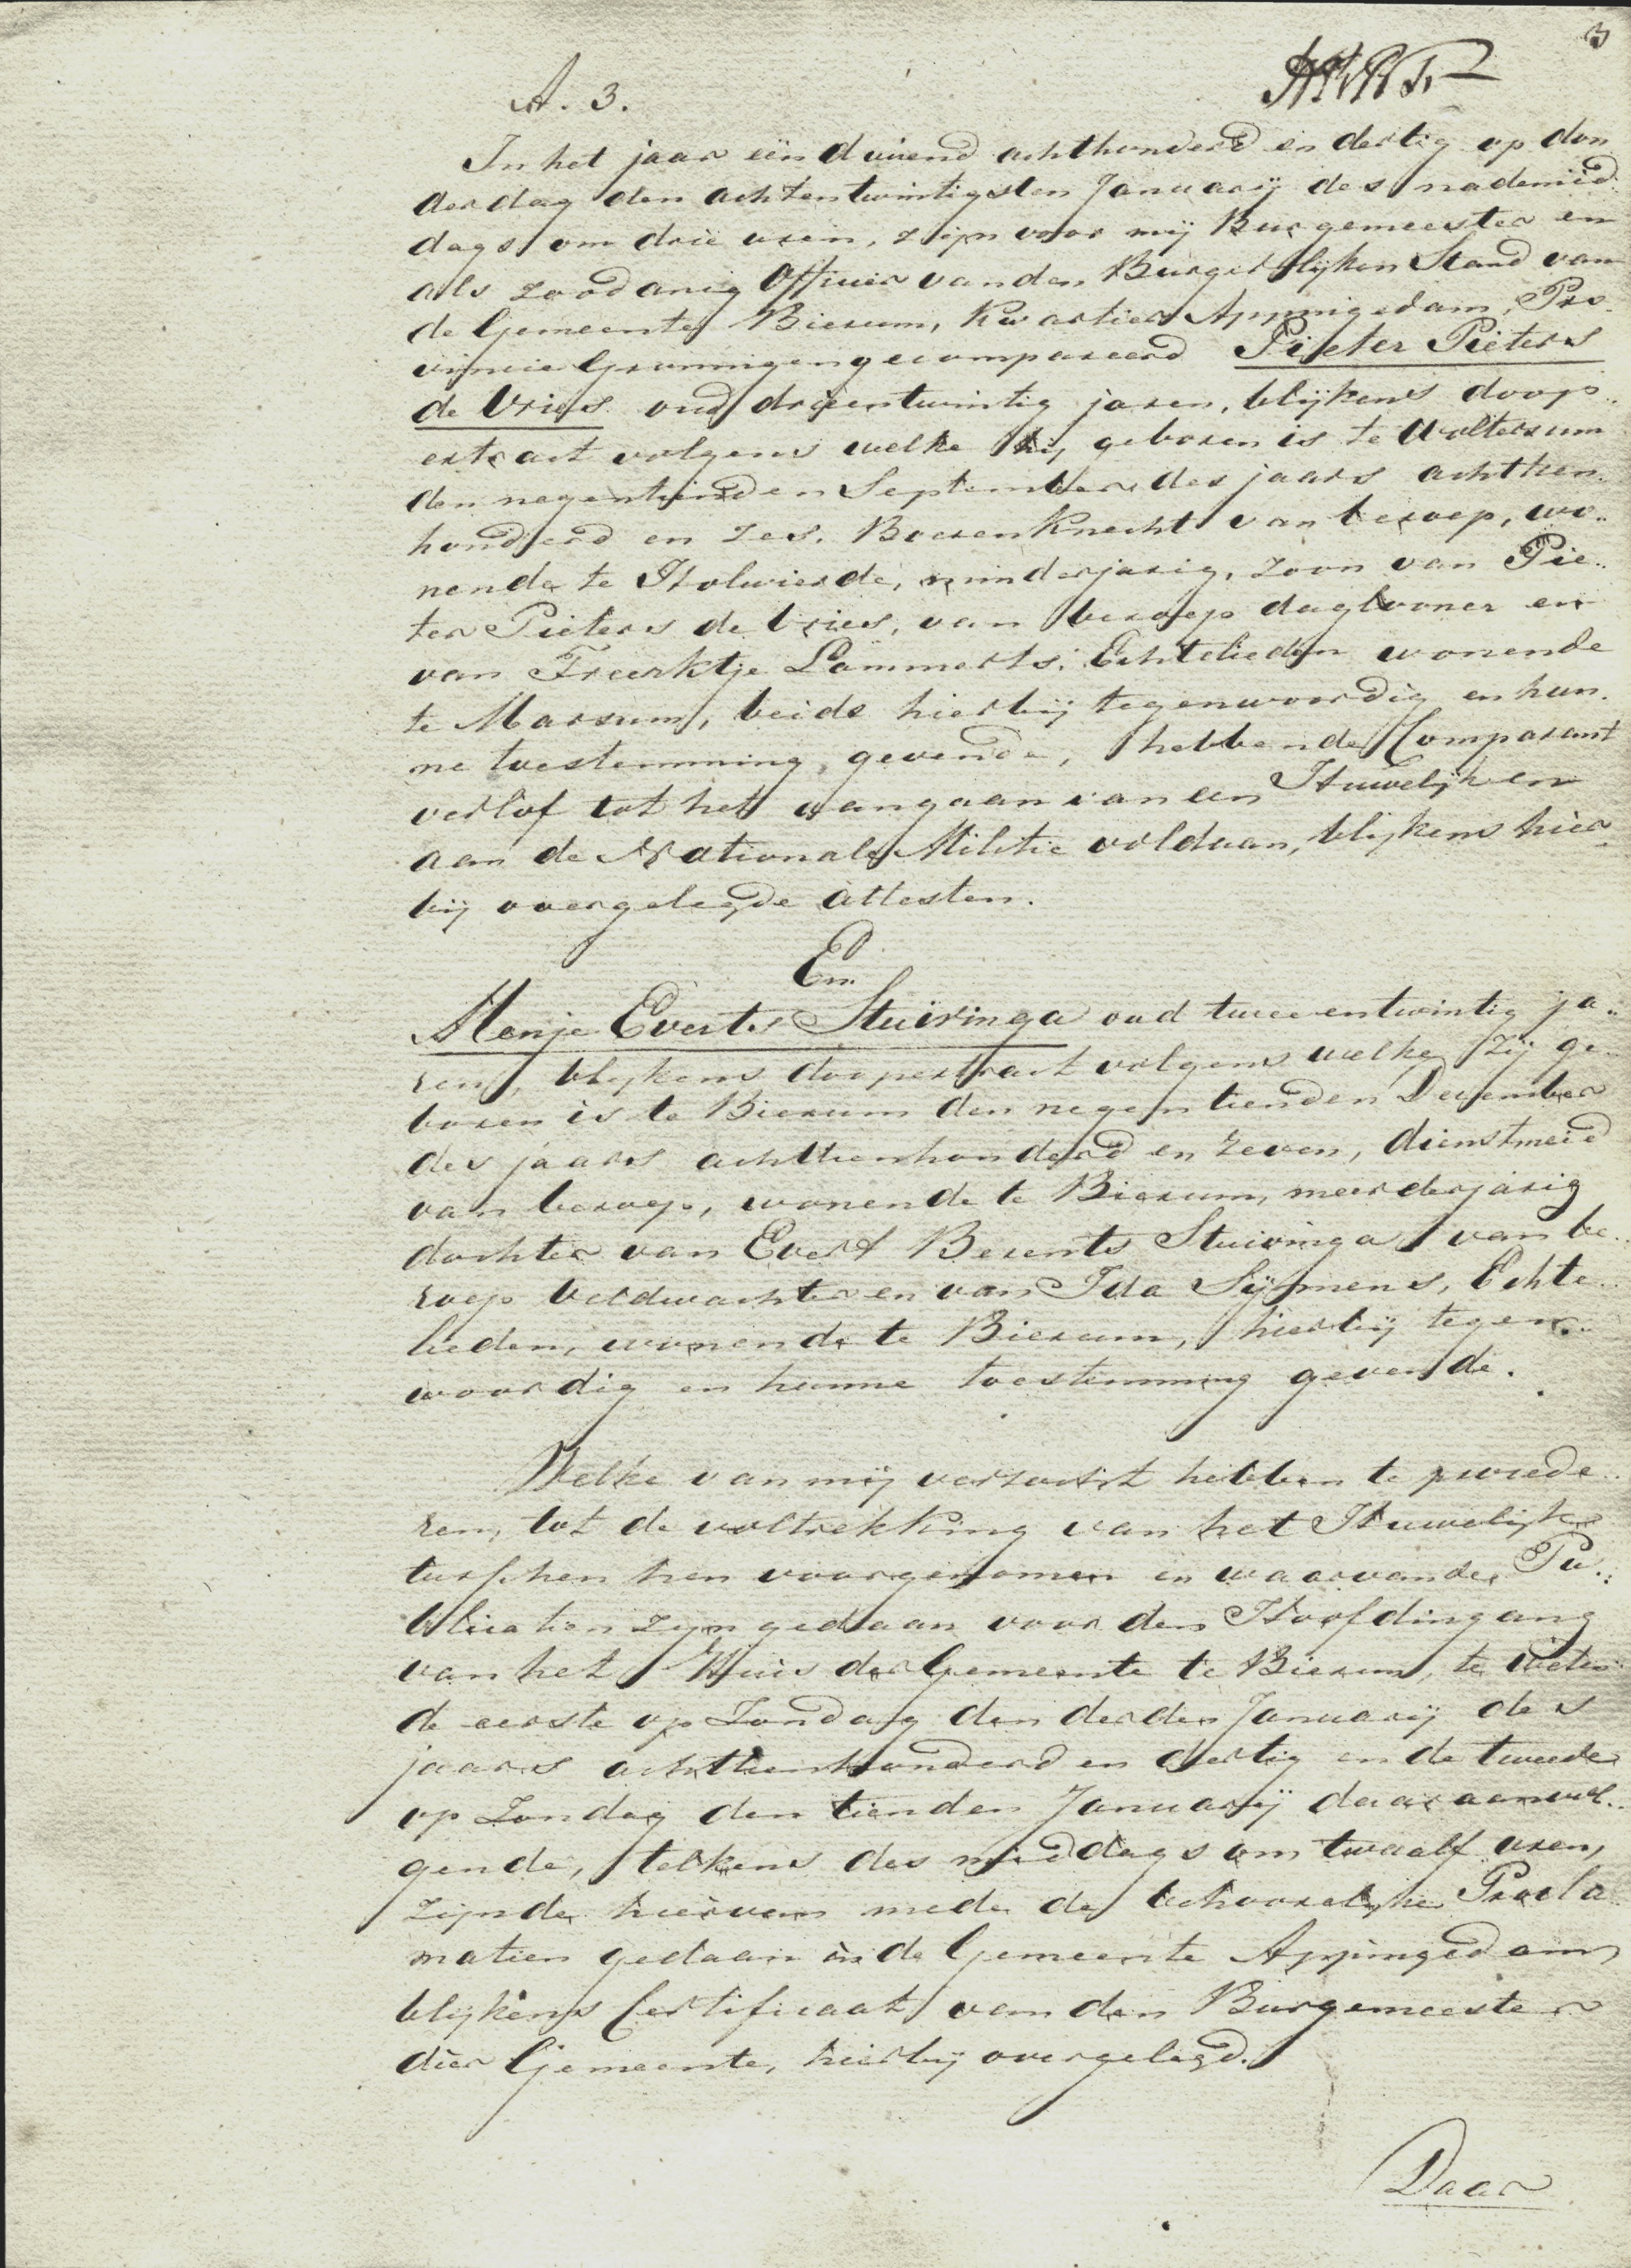 3
A. 3.
In het jaar een duizend achthonderd en dertig op don
derdag den achtentwintigsten Januarij des nademid
dags om drie uren, zijn voor mij Burgemeester en
als zoodanig Officier van den Burgerlijken Stand van
de Gemeente Bierum, Kwartier Appingedam, Pro-
vincie Groningen gecompareerd Pieter Pieters
de Vries oud drieentwintig jaren, blijkens doop..
extract volgens welke hij geboren is te Woltersum
den negentienden September des jaars achttien
honderd en zes. Boerenknecht van beroep, wo..
nende te Holwierde, minderjarig, zoon van Pie..
ter Pieters de Vries, van beroep daglooner en
van Freerktje Lammerts. Echtelieden wonende
te Marsum, beide hierbij tegenwoordig en hun.
ne toestemming gevende, hebbende Comparant
verlof tot het aangaan van een Huwelijk en
aan de Nationale Militie voldaan, blijkens hier-
bij overgelegde attesten.
En
Menje Everts Stuivinga oud tweeentwintig ja..
ren, blijkens doopextract volgens welke zij ge..
boren is te Bierum den negentienden December
des jaars achttienhonderd en zeven, dienstmeid
van beroep, wonende te Bierum, meerderjarig
dochter van Evert Berents Stuivinga van be..
roep veldwachter en van Ida Sijmens, Echte..
lieden, wonende te Bierum, hierbij tegen..
woordig en hunne toestemming gevende.
Welke van mij verzocht hebben te procede..
ren, tot de voltrekking van het Huwelijk
tusschen hen voorgenomen en waarvan de Pu..
blicatien zijn gedaan voor den Hoofdingang
van het Huis der Gemeente te Bierum, te weten
de eerste op Zondag den derden Januarij des
jaars achttienhonderd en dertig en de tweede
op Zondag den tienden Januarij daaraanvol..
gende, telkens des middags om twaalf uren,
zijnde hiervan mede de behoorelijke Procla
matien gedaan in de Gemeente Appingedam,
blijkens Certificaat van den Burgemeester
dier Gemeente, hierbij overgelegd.
Daar